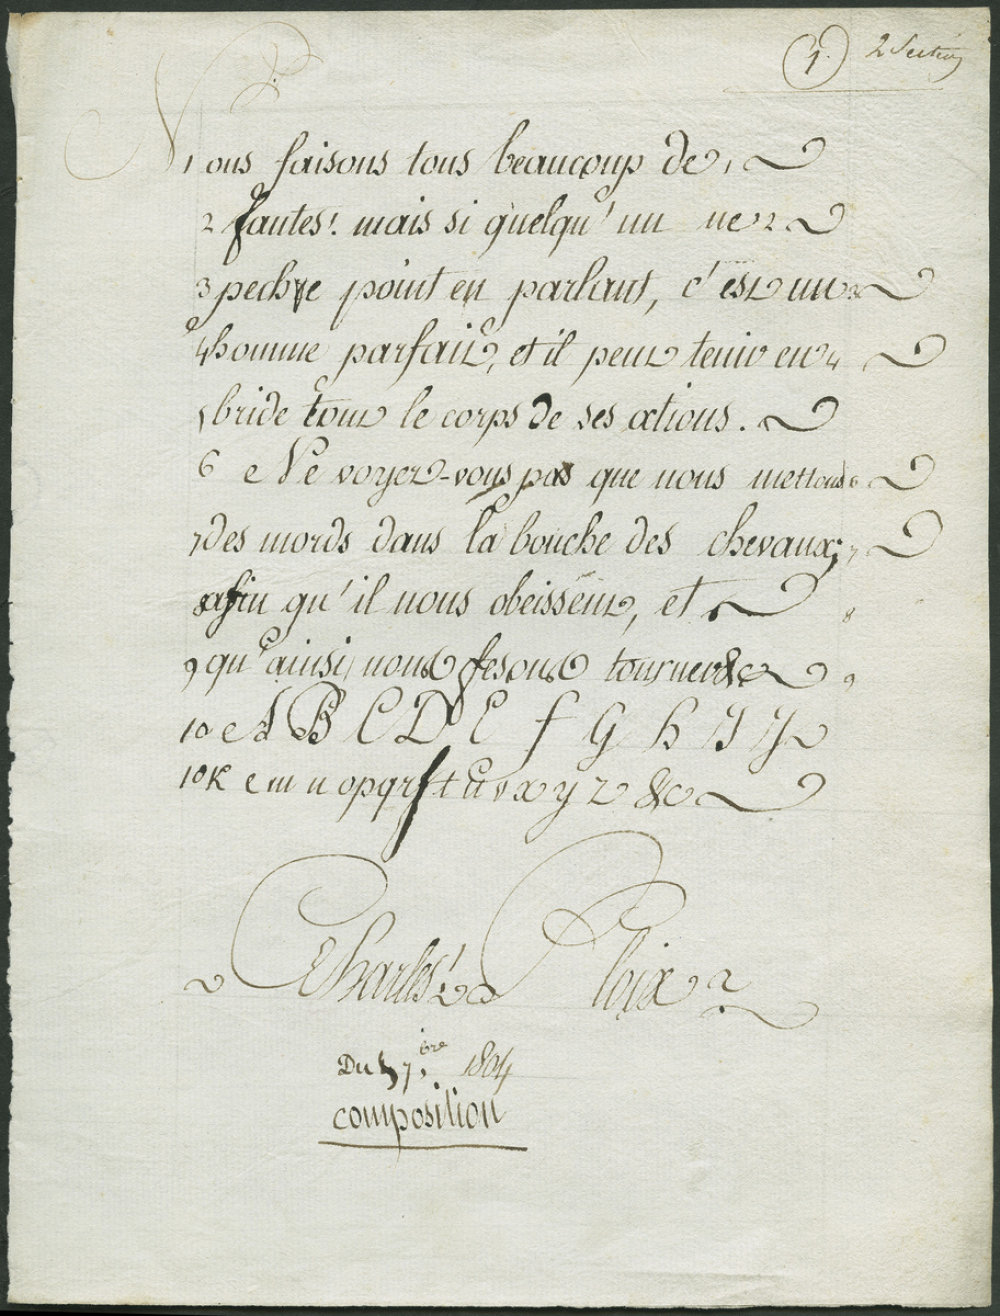 (1.) 2 Section
1 Nous faisons tous beaucoup de 1
2 fautes: mais si quelqu'un ne 2
3 peche point en parlant, c'est un 3
4 homme parfait, et il peut tenir en 4
5 bride tout le corps de ses actions.
6 Ne voyez-vous pas que nous mettons 6
7 des mords dans la bouche des chevaux; 7
8 afin qu'il nous obeissent, et 8
9 qu'ainsi nous fesons tourner &c 9
10 A B C D E f G h
10 K e m n o p q r s t u v x y z &c
Charles Cloix
Du 5 7.bre 1804
composition